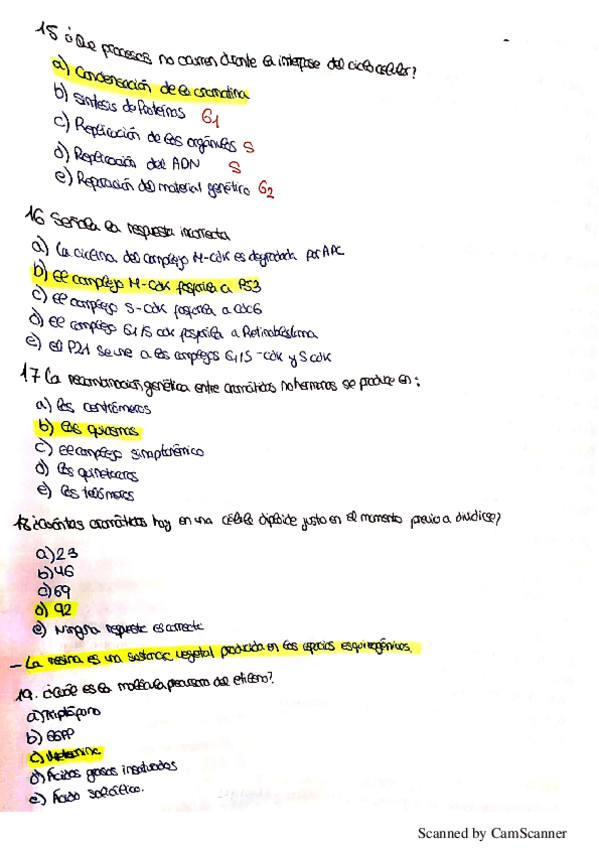 15 ¿Que procesos no ocurren durante la interfase del ciclo celular?
a) Condensación de la cromatina
b) Síntesis de Proteínas G1
c) Replicación de los orgánulos S
d) Replicación del ADN S
e) Reparación del material genético G2
16 Señala la respuesta incorrecta
a) La ciclina del complejo M-cdk es degradada por APC
b) El complejo M-cdk fosforila a P53
c) El complejo S-cdk fosforila a cdc6
d) El complejo G1/S cdk fosforila a Retinoblastoma
e) el P21 se une a los complejos G1/S-cdk y S cdk
17 La recombinación genética entre cromátidas no hermanas se produce en:
a) los centrómeros
b) los quiasmas
c) El complejo sinaptonémico
d) los quinetocoros
e) los telómeros
18 ¿Cuántas cromátidas hay en una célula diploide justo en el momento previo a dividirse?
a) 23
b) 46
c) 69
d) 92
e) Ninguna respuesta es correcta
- La resina es una sustancia vegetal producida en los espacios esquizógenos.
19. ¿Cuál es la molécula precursora del etileno?
a) Triptófano
b) GGPP
c) Metionina
d) Ácidos grasos insaturados
e) Ácido salicílico.
Scanned by CamScanner